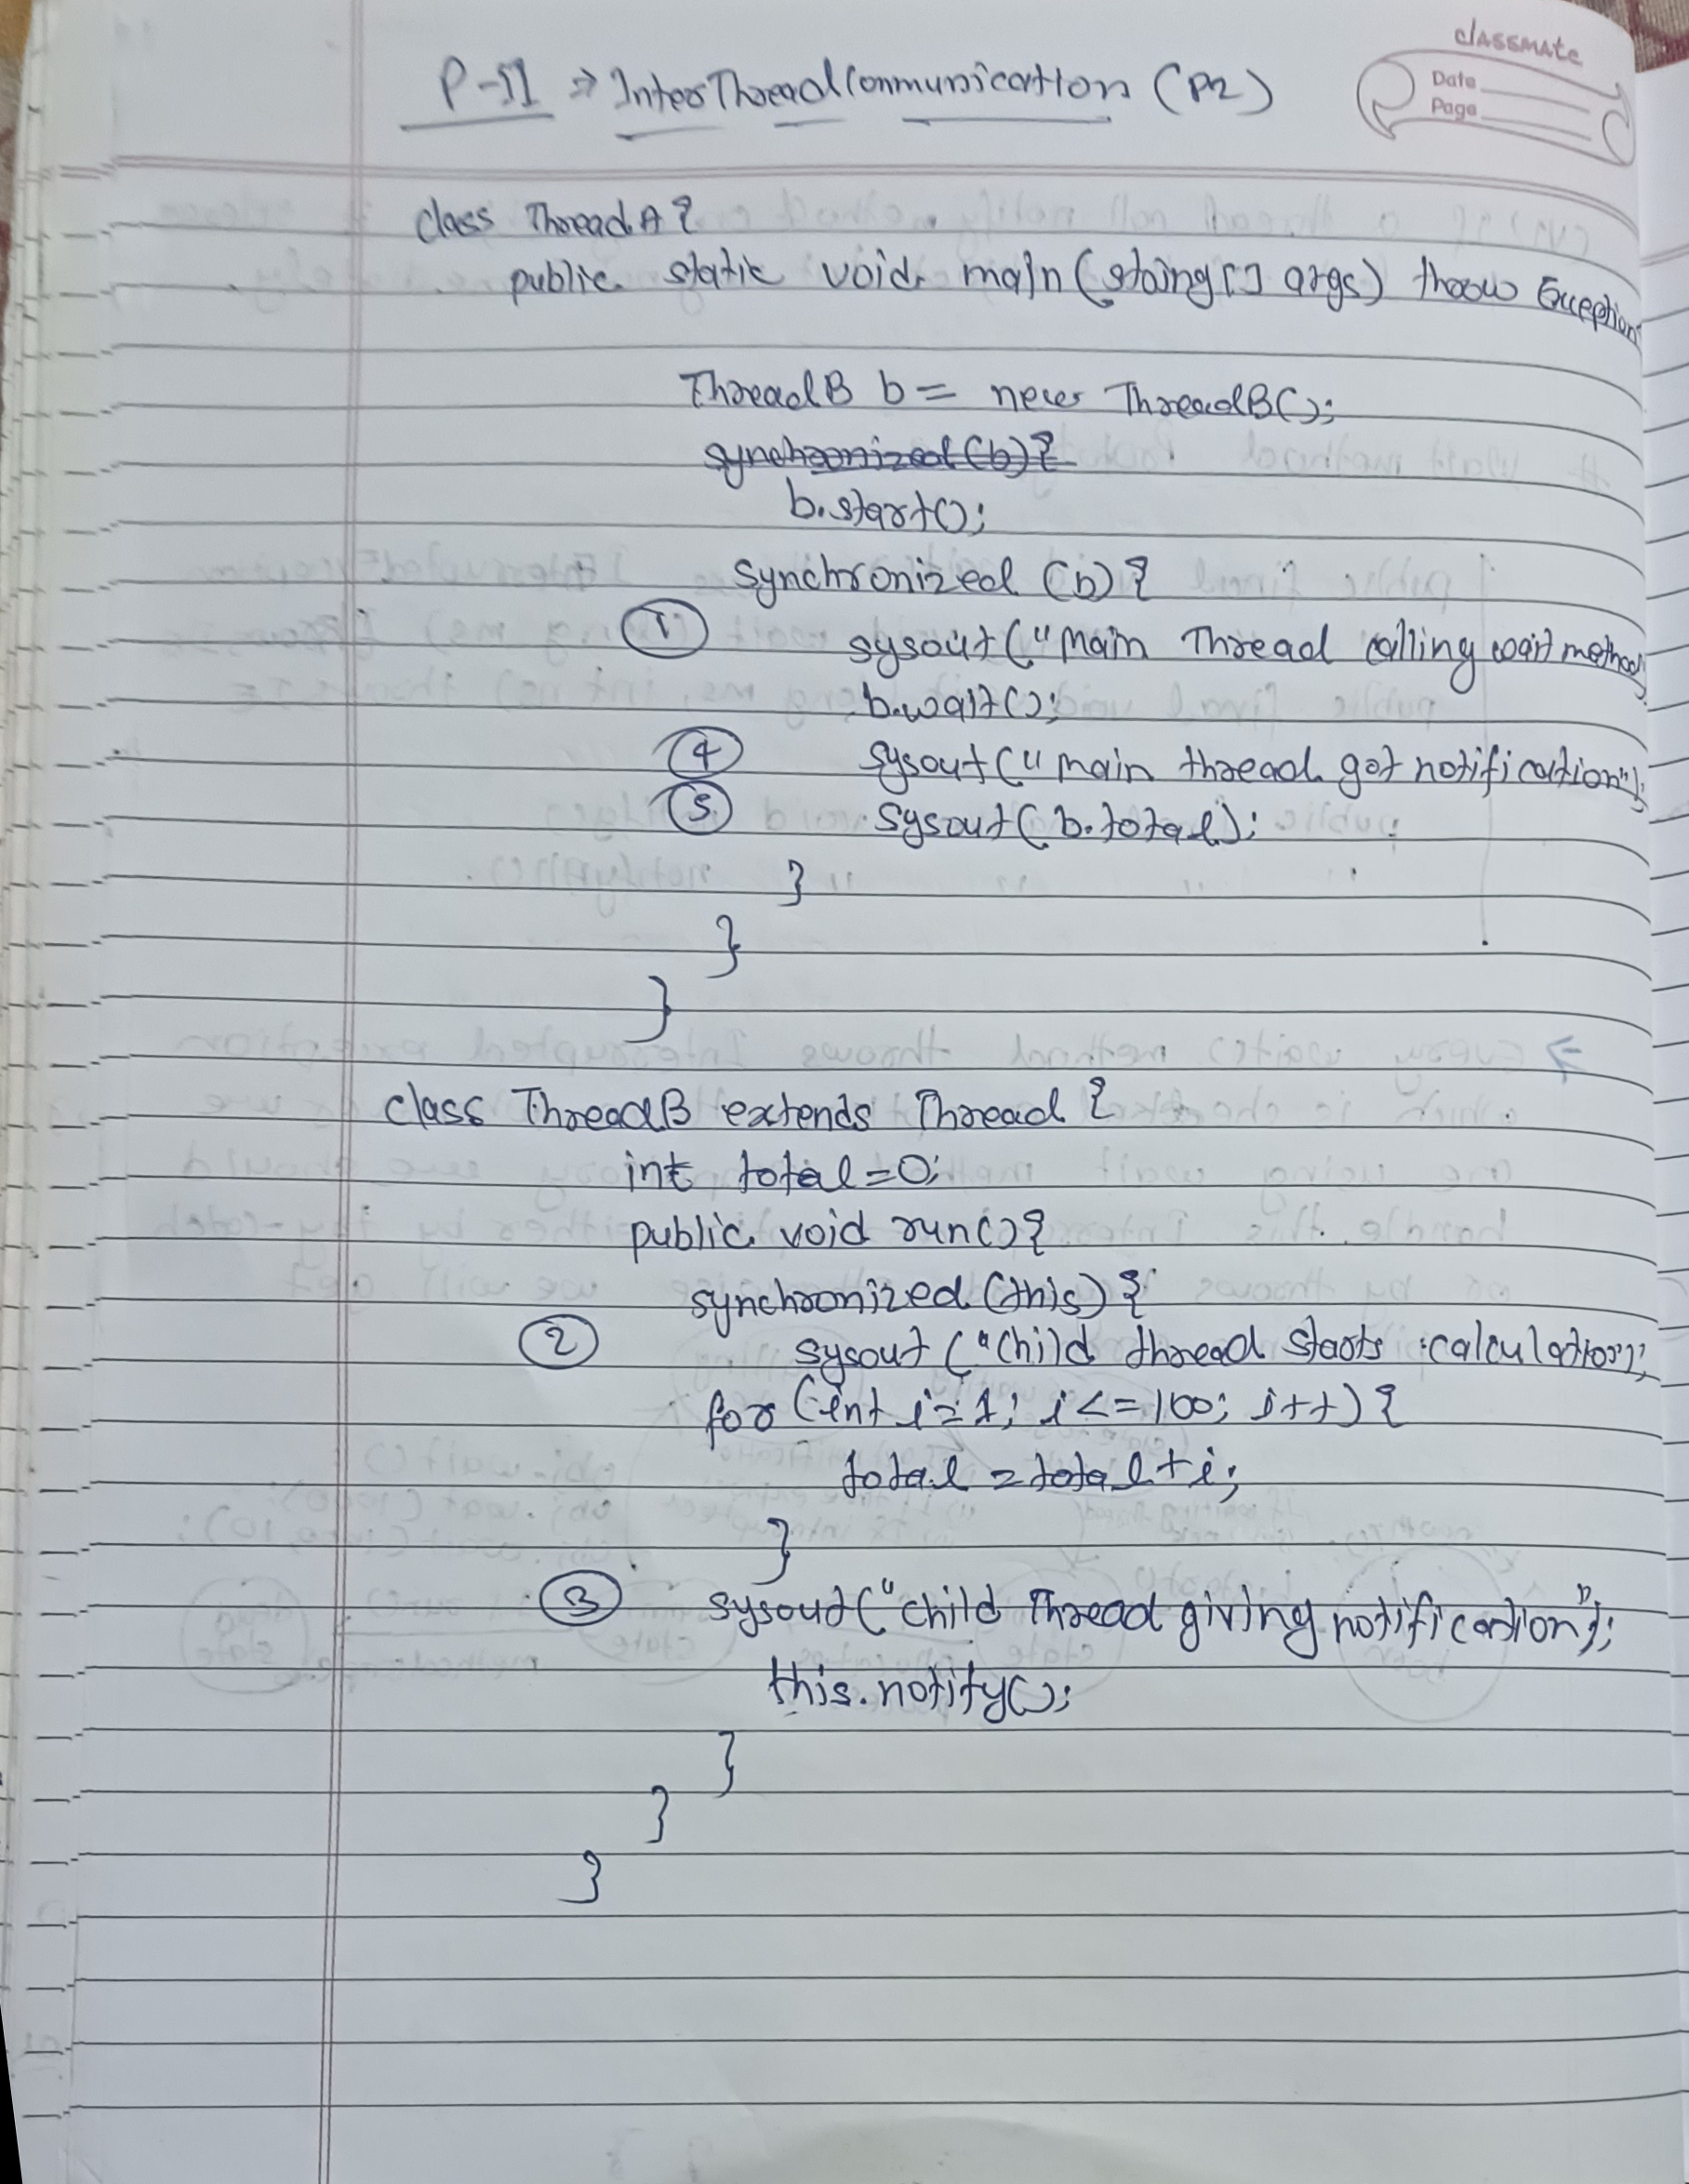 classmate
Date
Page
P-11 ⇒ InterThreadCommunication (P2)
class ThreadA {
public static void main(string[] args) throw Exception
ThreadB b = new ThreadB();
synchronized(b){
b.start();
synchronized (b) {
① sysout("Main Thread calling wait method
b.wait();
④ sysout("main thread got notification");
⑤ sysout(b.total);
}
}
}
class ThreadB extends Thread {
int total=0;
public void run(){
synchronized(this) {
② sysout("Child thread starts calculation");
for (int i=1; i<=100; i++) {
total = total+i;
}
③ sysout("child Thread giving notification");
this.notify();
}
}
}